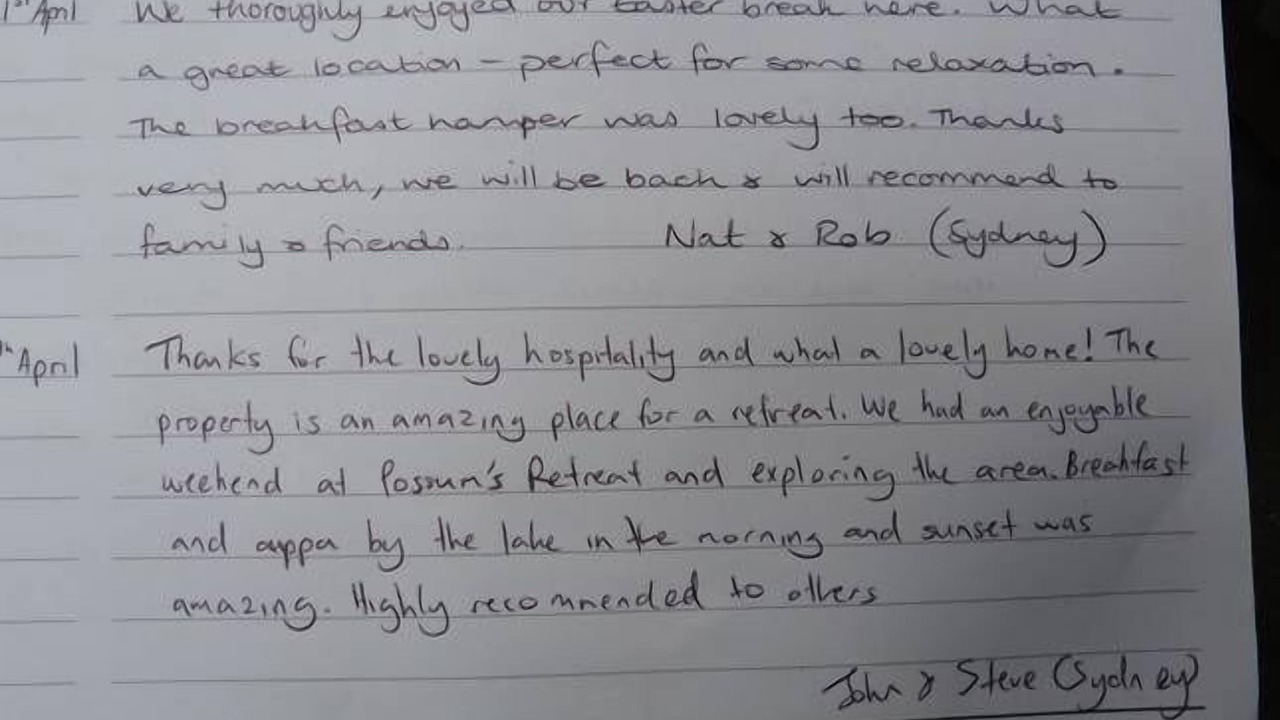 1st April We thoroughly enjoyed our Easter break here. What
a great location - perfect for some relaxation.
The breakfast hamper was lovely too. Thanks
very much, we will be back & will recommend to
family & friends. Nat & Rob (Sydney)
April Thanks for the lovely hospitality and what a lovely home! The
property is an amazing place for a retreat. We had an enjoyable
weekend at Possum's Retreat and exploring the area. Breakfast
and cuppa by the lake in the morning and sunset was
amazing. Highly recommended to others
John & Steve (Sydney)